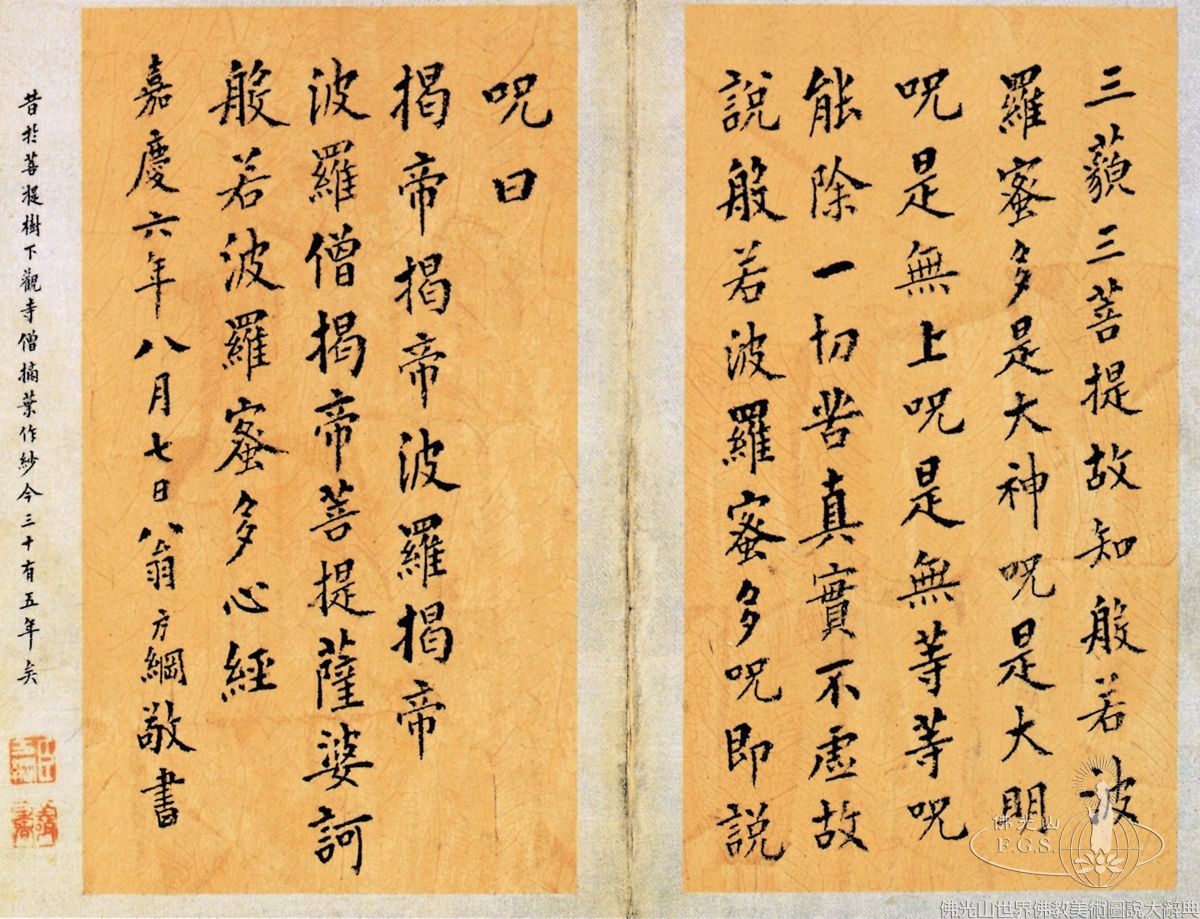 三藐三菩提故知般若波
羅蜜多是大神呪是大明
呪是無上呪是無等等呪
能除一切苦真實不虛故
說般若波羅蜜多呪即說
呪曰
揭帝揭帝波羅揭帝
波羅僧揭帝菩提薩婆訶
般若波羅蜜多心經
嘉慶六年八月七日翁方綱敬書
昔於菩提樹下觀寺僧摘葉作紗今三十有五年矣
佛光山
F.G.S.
佛光山世界佛教美術圖說大辭典